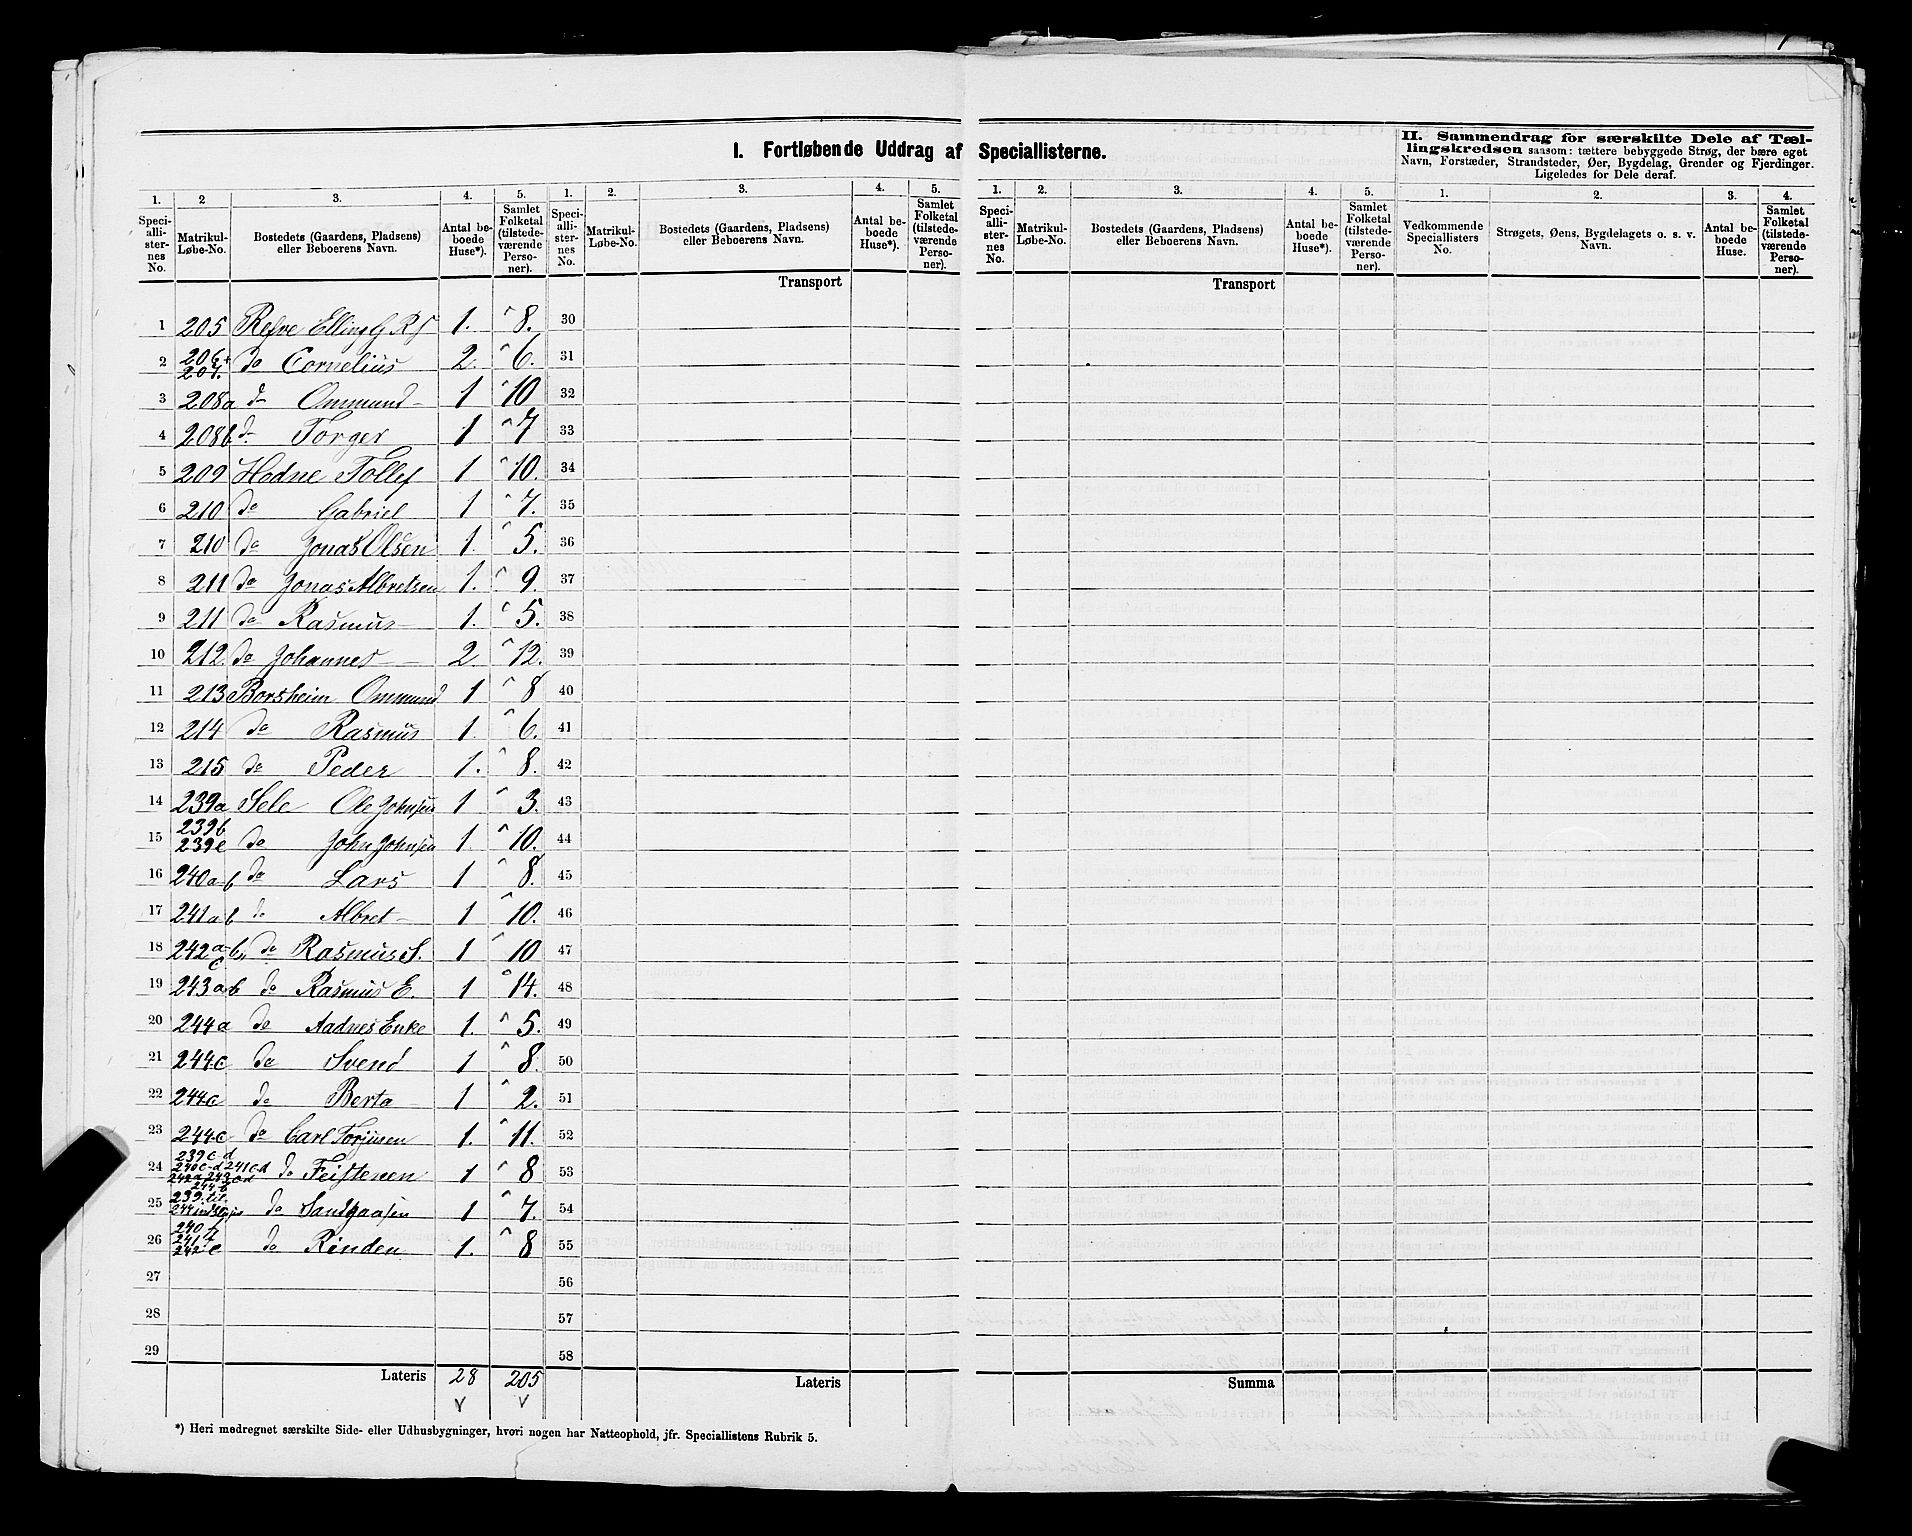 I. Fortløbende Uddrag af Speciallisterne.
II. Sammendrag for særskilte Dele af Tæl-
lingskredsen saasom: tættere bebyggede Strøg, der bære eget
Navn, Forstæder, Strandsteder, Øer, Bygdelag, Grender og Fjerdinger.
Ligeledes for Dele deraf.
1. 2 3. 4. 5. 1. 2. 3. 4. 5. 1. 2. 3. 4. 5. 1. 2. 3. 4.
Speci-
alli-
ster-
nes
No.
Matrikul-
Løbe-No.
Bostedets (Gaardens, Pladsens)
eller Beboerens Navn.
Antal be-
boede
Huse*).
Samlet
Folketal
(tilstede-
værende
Perso-
ner).
Speci-
alli-
ster-
nes
No.
Matrikul-
Løbe-No.
Bostedets (Gaardens, Pladsens)
eller Beboerens Navn.
Antal be-
boede
Huse*).
Samlet
Folketal
(tilstede-
værende
Perso-
ner).
Speci-
alli-
ster-
nes
No.
Matrikul-
Løbe-No.
Bostedets (Gaardens, Pladsens)
eller Beboerens Navn.
Antal be-
boede
Huse*).
Samlet
Folketal
(tilstede-
værende
Perso-
ner).
Vedkommende
Speciallisters
No.
Strøgets, Øens, Bygdelagets o. s. v.
Navn.
Antal be-
boede
Huse.
Samlet
Folketal
(tilstede-
værende
Perso-
ner).
Transport Transport
1 205 Refve Elling G R S 1. 8. 30
2 206+ 207. do Cornelius 2. 6. 31
3 208a do Ommund 1 10 32
4 208b do Torger 1 7 33
5 209 Hodne Tollef 1 10. 34
6 210 do Gabriel 1 7. 35
7 210 do Jonas Olsen 1. 5. 36
8 211 do Jonas Albretsen 1. 9. 37
9 211 do Rasmus 1. 5. 38
10 212. do Johannes 2 12. 39
11 213 Borsheim Ommund 1 8 40
12 214 do Rasmus 1. 6. 41
13 215 do Peder 1. 8. 42
14 239a Sele Ole Johnsen 1 3. 43
15 239b 239e do John Johnsen 1. 10. 44
16 240a-b do Lars 1 8. 45
17 241a b do Albret 1 10. 46
18 242a-b c do Rasmus S. 1 10 47
19 243a b do Rasmus E. 1 14. 48
20 244a do Aadnes Enke 1. 5. 49
21 244c do Svend 1 8. 50
22 244c do Berta 1 2. 51
23 244c do Carl Torjusen 1. 11. 52
24 239c-d 240c-d 241c-d 244b do Feistenen 1 8 53
25 239. til 244 do Sandgaasen 1 7. 54
26 240f 241f 242e do Rinden 1. 8 55
27 56
28 57
29 58
Lateris 28 205 Lateris Summa
*) Heri medregnet særskilte Side- eller Udhusbygninger, hvori nogen har Natteophold, jfr. Speciallistens Rubrik 5.